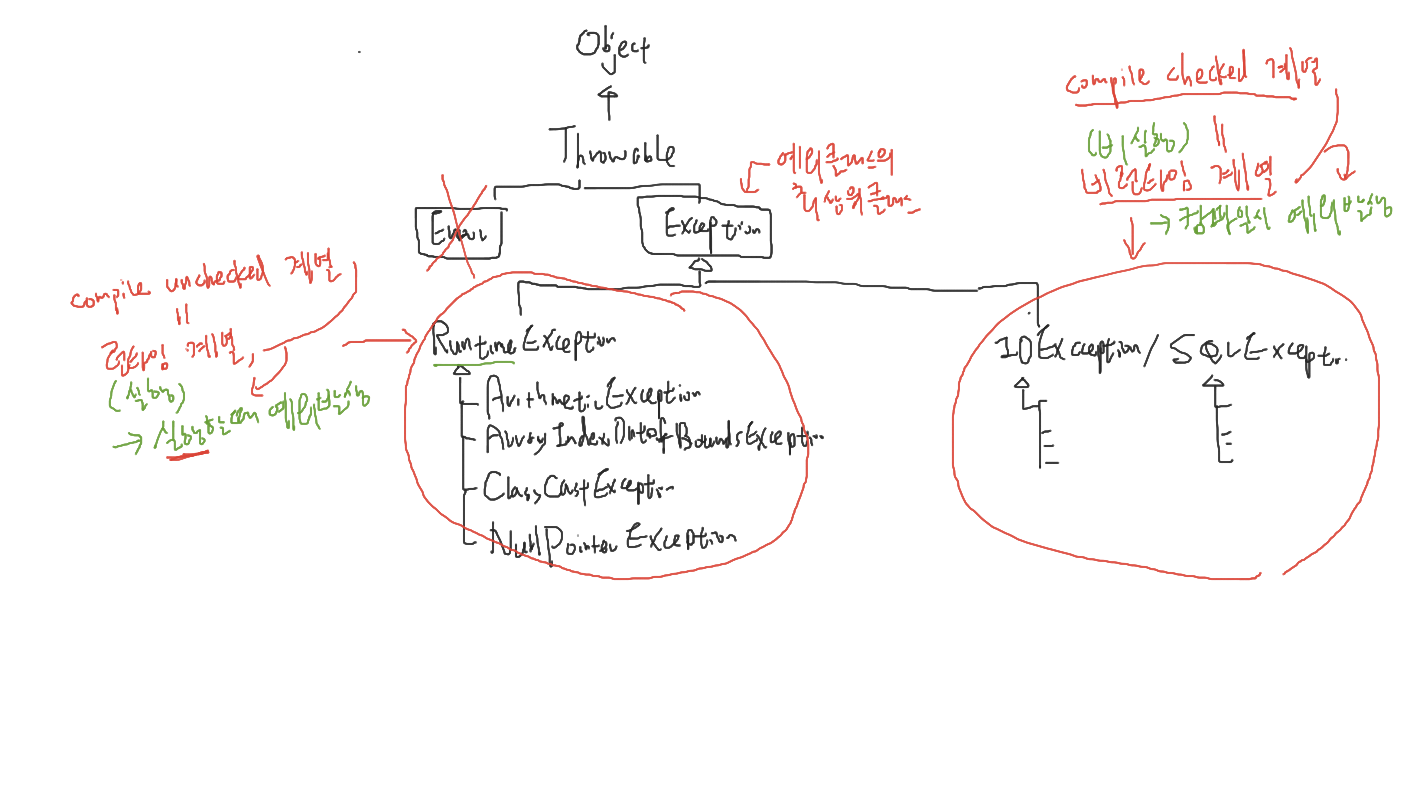 Object
Throwable
Error
Exception
예외클래스의
최상위클래스
compile checked 계열
=
(비실행)
비런타임 계열
→ 컴파일시 예외발생
compile unchecked 계열
=
런타임 계열,
(실행)
→ 실행하는데 예외발생
RuntimeException
ArithmeticException
ArrayIndexOutofBoundsException
ClassCastException
NullPointerException
IOException / SQLException